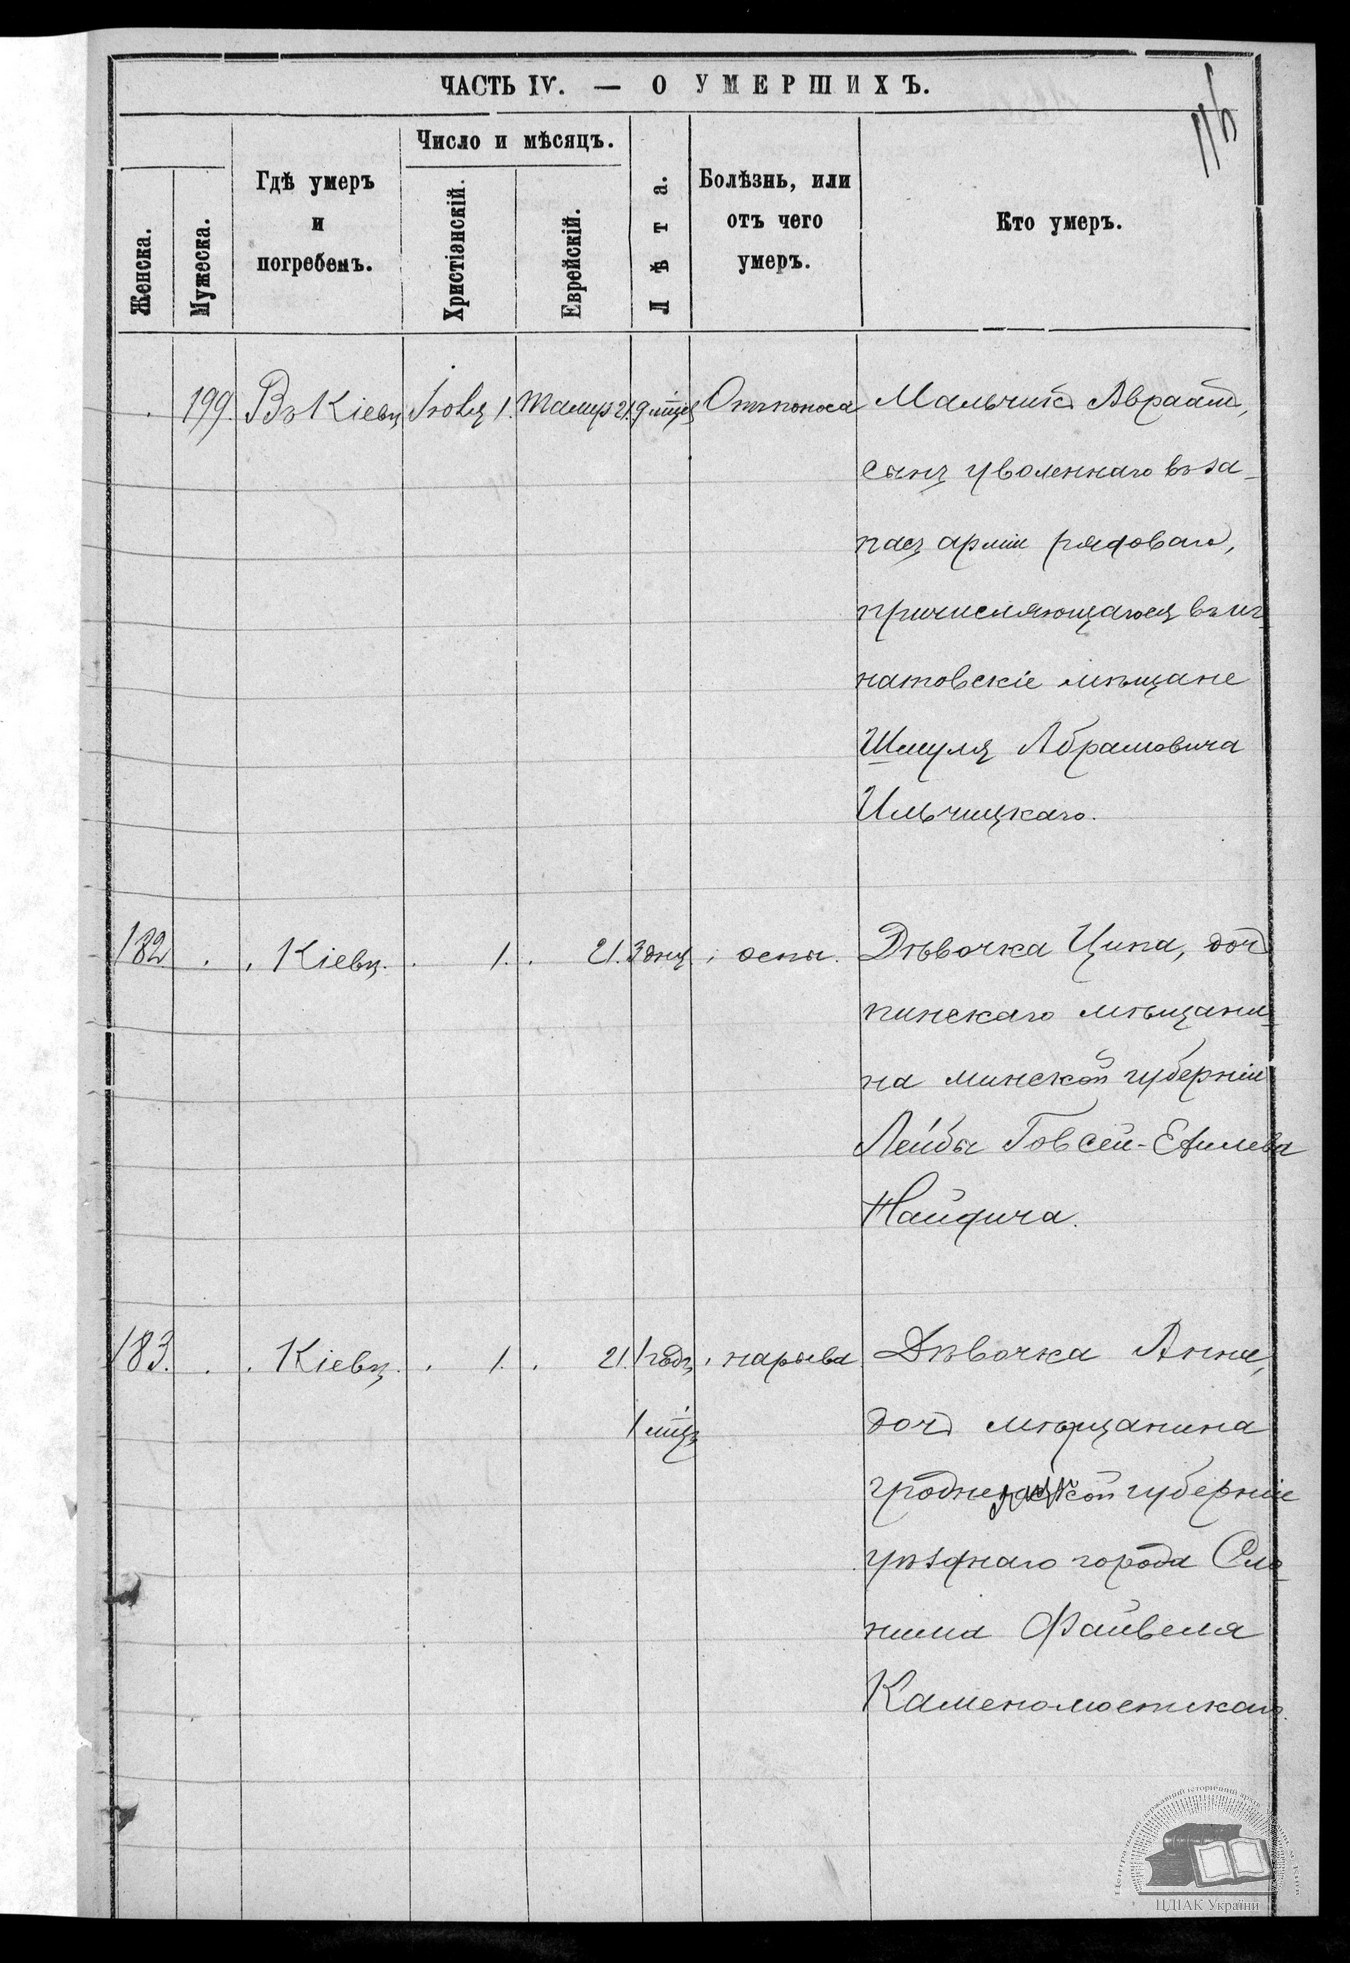 ЧАСТЬ IV. — О УМЕРШИХЪ.
116
Женска.
Мужеска.
Гдѣ умеръ
и
погребенъ.
Число и мѣсяцъ.
Христіанскій.
Еврейскій.
Лѣта.
Болѣзнь, или
отъ чего
умеръ.
Кто умеръ.
199. Въ Кіевѣ Іюля 1. Тамуз 21. 9 мѣсяц Отъ поноса Мальчикъ Авраамъ,
сынъ уволеннаго въ за-
пасъ арміи рядоваго,
причисляющагося въ иг-
натовскіе мѣщане
Шмуля Абрамовича
Ильчицкаго.
182 . . Кіевѣ. . 1. . 21. 3 дня . оспы. Дѣвочка Ципа, дочь
пинскаго мѣщани-
на минской губерніи
Лейбы Говсей-
Найдича.
183. . . Кіевѣ. . 1. . 21. 1 годъ . нарыва Дѣвочка Анна,
1 мѣцъ дочь мѣщанина
гродненской губерніи
уѣзднаго города Сло-
нима Файвеля
Каменомостскаго.
ЦДІАК України